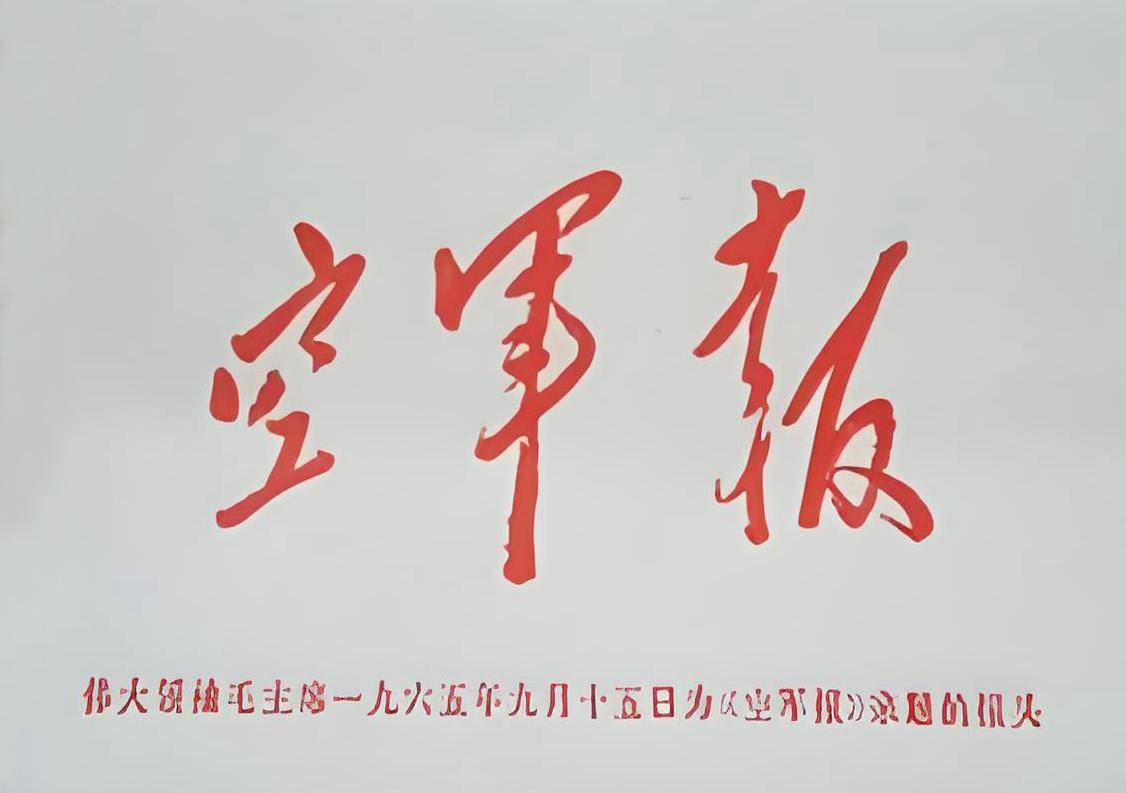 空軍報
伟大领袖毛主席一九六五年九月十五日为《空军报》亲题的报头